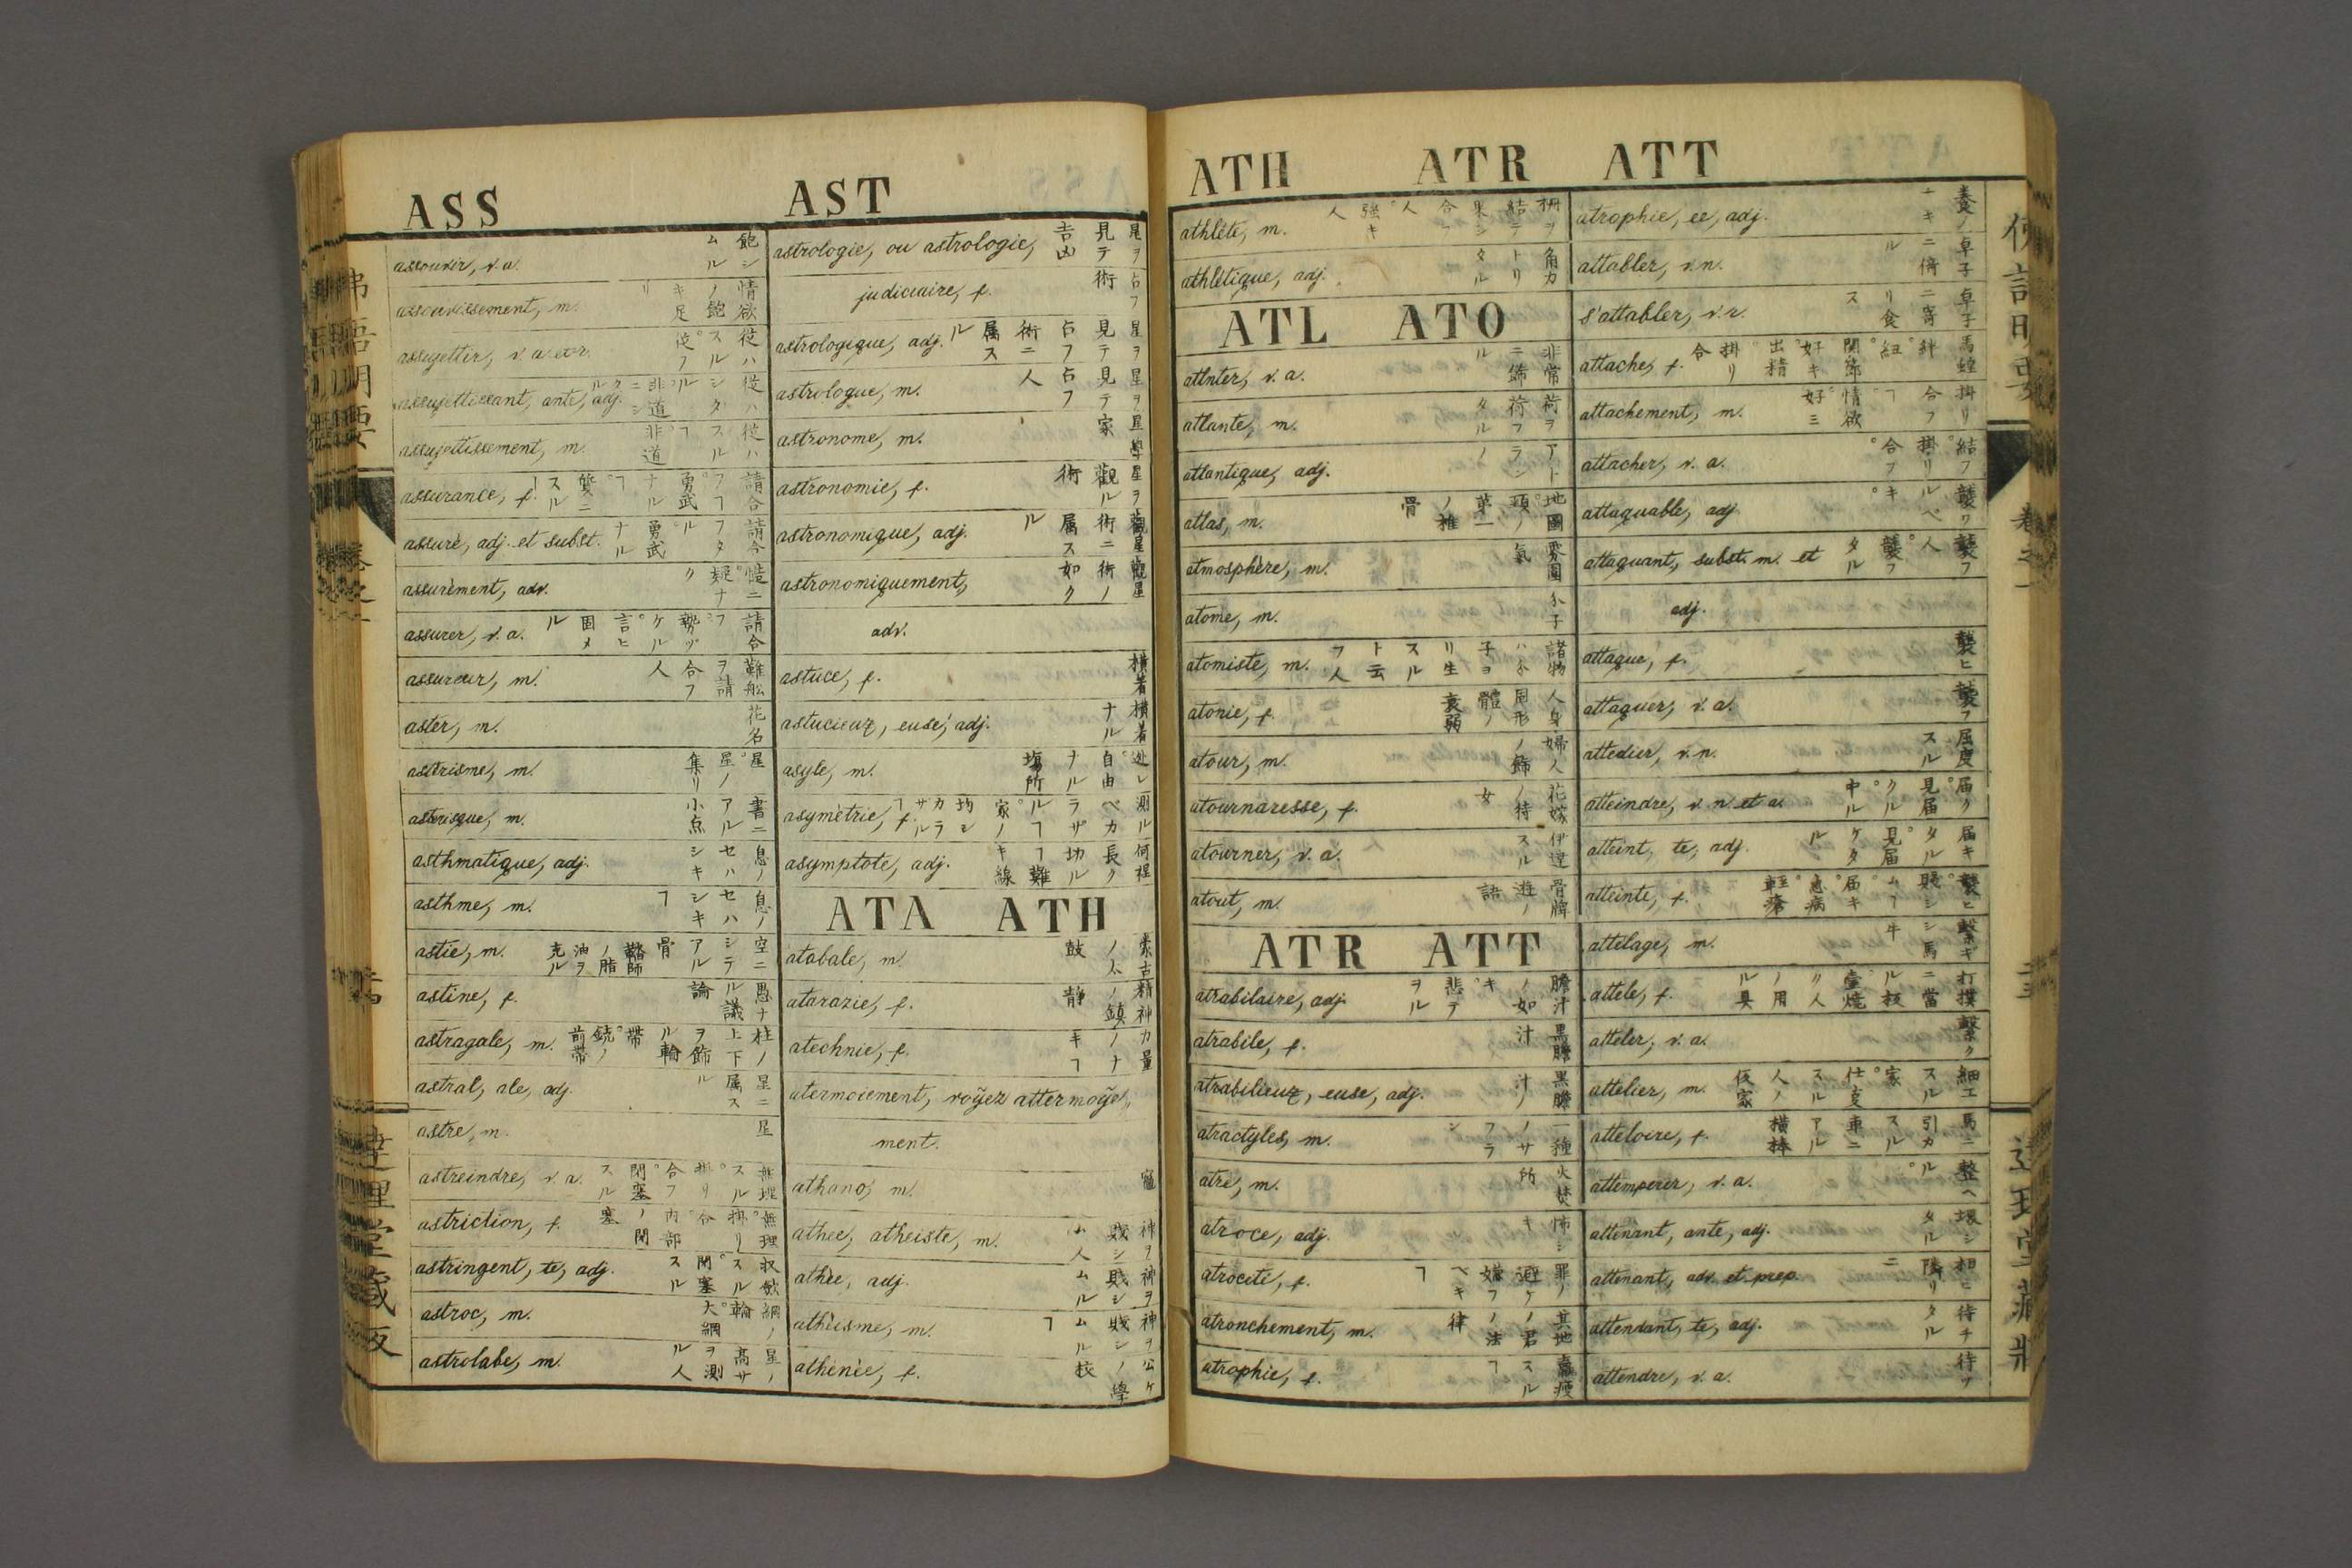 ASS AST
assouvir, v. a. 飽シムル
assouvissement, m. 情欲ノ飽キ足リ
assujettir, v. a. et r. 従ハスル。使フ
assujettissant, ante, adj. 従ハシタル。非道ニシタル
assujettissement, m. 従ハスルヿ。非道
assurance, f. 請合フヿ。勇武ナルヿ。
assuré, adj. et subst. 請合フタル。勇武ナル
assurément, adv. 慥ニ。疑ナク
assurer, v. a. 請合フ。勢ヅケル。言ヒ固メル
assureur, m. 難舩ヲ請合フ人
aster, m. 花名
astérisme, m. 星。星ノ集リ
astérisque, m. 書ニアル小点
asthmatique, adj. 息ノセハシキ
asthme, m. 息ノセハシキヿ
astic, m. 空ニシテアル骨
astine, f. 愚ナル議論
astragale, m. 柱ノ上下ヲ飾ル輪帯。銃ノ前帯
astral, ale, adj. 星ニ属スル
astre, m. 星
astreindre, v. a. 無理スル。掛リ合フ。閉塞スル
astriction, f. 無理。掛リ合。内部ノ閉塞
astringent, te, adj. 収斂スル。閉塞スル
astroc, m. 綱ノ輪。大綱
astrolabe, m. 星ノ高サヲ測ル人
astrologie, ou astrologie, 星ヲ見テ吉凶
judiciaire, f. 占フ術
astrologique, adj. 星ヲ見テ占フ術ニ属スル
astrologue, m. 星ヲ見テ占フ人
astronome, m. 星學家
astronomie, f. 星ヲ觀ル術
astronomique, adj. 觀星術ニ属スル
astronomiquement, 觀星術ノ如ク
adv.
astuce, f. 横着
astucieux, euse, adj. 横着ナル
asyle, m. 逃レ。自由ナル場所
asymétrie, f. 測ルベカラザルヿ。
asymptote, adj. 何程長ク
ATA ATH
atabale, m. 蒙古ノ太鼓
ataraxie, f. 精神ノ鎮静
atechnie, f. 力量ノナキヿ
atermoiement, voÿez attermoÿe,,
ment.
athano, m. 竈
athée, atheiste, m. 神ヲ賎シム人
athée, adj. 神ヲ賎シムル
athéisme, m. 神ヲ賎シムルヿ
athénée, f. 公ケノ學校
ATH ATR ATT
athlète, m. 强キ人
athlétique, adj. 角力トリタル
ATL ATO
atlnter, v. a. 非常ニ飾ル
atlante, m. 荷ヲ荷フタル
atlantique, adj. アトランノ
atlas, m. 地圖。頚ノ第一ノ椎骨
atmosphère, m. 雰圍氣
atome, m. 分子
atomiste, m. 諸物ハ分子ヨリ生スルト云フ人
atonie, f. 人身固形體ノ衰弱
atour, m. 婦人ノ飾
atournaresse, f. 花嫁ノ待女
atourner, v. a. 伊達スル
atout, m. 骨牌遊ノ語
ATR ATT
atrabilaire, adj. 膽汁ノ如キ。
atrabile, f. 黒膽汁
atrabilieux, euse, adj. 黒膽汁ノ
atractyles, m. 一種ノサフラン
atre, m. 火焚所
atroce, adj. 怖シキ
atrocité, f. 罪ノ避ケ嫌フベキヿ
atronchement, m. 其地ノ君ノ法律
atrophie, f. 羸痩スルヿ
atrophie, ee, adj. 養ノナキ
attabler, v. n. 卓子ニ倚ル
s'attabler, v. r. 卓子ニ寄リ食ス
attache, f. 馬蝗絆。紐。関節。好キ。出精。掛リ合
attachement, m. 掛リ合フヿ。情欲。好ミ
attacher, v. a. 結フ。掛リ合フ。
attaquable, adj. 襲フルベキ。
attaquant, subst. m. et 襲フ人。襲フタル
adj.
attaque, f. 襲ヒ
attaquer, v. a. 襲フ
attedier, v. n. 屈度スル
atteindre, v. n. et a. 届ク。見届クル。中ル
atteint, te, adj. 届キタル。見届ケタル
atteinte, f. 襲ヒ。賎シムヿ。届キ。急病。軽瘡
attelage, m. 繋ギシ馬牛
attele, f. 打撲ニ當ル板。
atteler, v. a. 繋ク
attelier, m. 細工スル家。仕事スル人ノ仮家
atteloire, f. 馬ニ引カスル車ニアル横棒
attemperer, v. a. 整ヘル。
attenant, ante, adj. 堺シタル
attenant, adv. et prep. 相ヒ隣リニ
attendant, te, adj. 待チタル
attendre, v. a. 待ツ